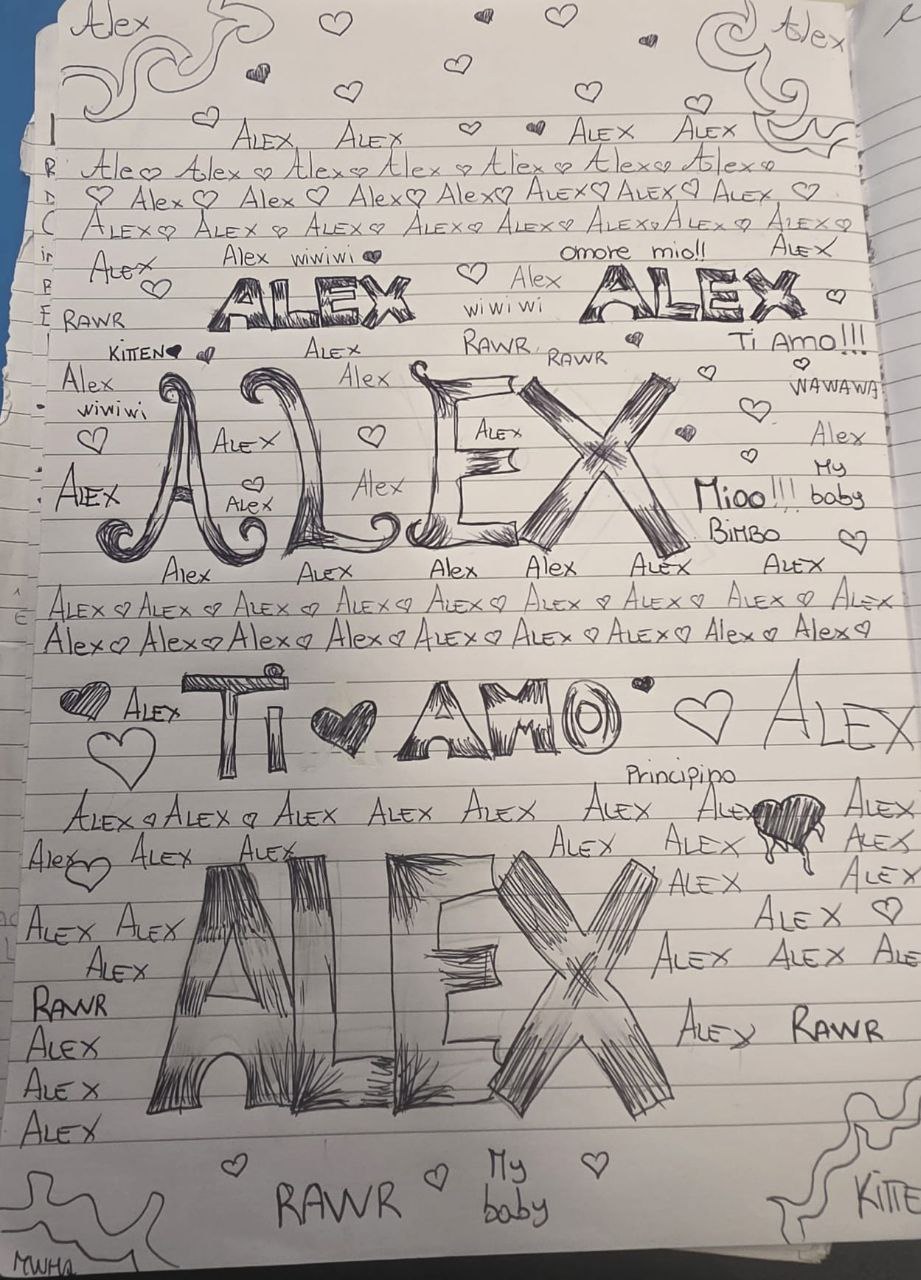 Alex Alex
ALEX ALEX ALEX ALEX
Ale♡ Alex ♡ Alex♡ Alex ♡ Alex ♡ Alex♡ Alex♡
♡ Alex♡ Alex ♡ Alex♡ Alex♡ ALEX♡ ALEX♡ ALEX ♡
ALEX♡ ALEX ♡ ALEX ♡ ALEX♡ ALEX♡ ALEX♡ ALEX ♡ ALEX♡
ALEX Alex wiwiwi omore mio!! ALEX
ALEX Alex ALEX
RAWR wiwiwi
KITTEN ALEX RAWR RAWR Ti Amo!!!
Alex Alex WAWAWA
wiwiwi
ALEX ALEX Alex
ALEX ALEX Alex My
ALEX Mioo!!! baby
BiMBO
ALEX
Alex ALEX Alex Alex ALEX ALEX
ALEX ♡ ALEX ♡ ALEX ♡ ALEX♡ ALEX♡ ALEX ♡ ALEX ♡ ALEX ♡ ALEX
Alex♡ Alex♡ Alex♡ Alex♡ ALEX♡ ALEX ♡ ALEX♡ Alex ♡ Alex♡
ALEX Ti ♥ AMO ALEX
Principino
ALEX ♡ ALEX ♡ ALEX ALEX ALEX ALEX ALEX ALEX
Alex♡ ALEX ALEX ALEX ALEX ALEX
ALEX ALEX
ALEX ALEX ALEX ♡
ALEX ALEX ALEX ALE
ALEX
RAWR ALEX RAWR
ALEX
ALEX
ALEX
RAWR My
baby KITTE
MWHA